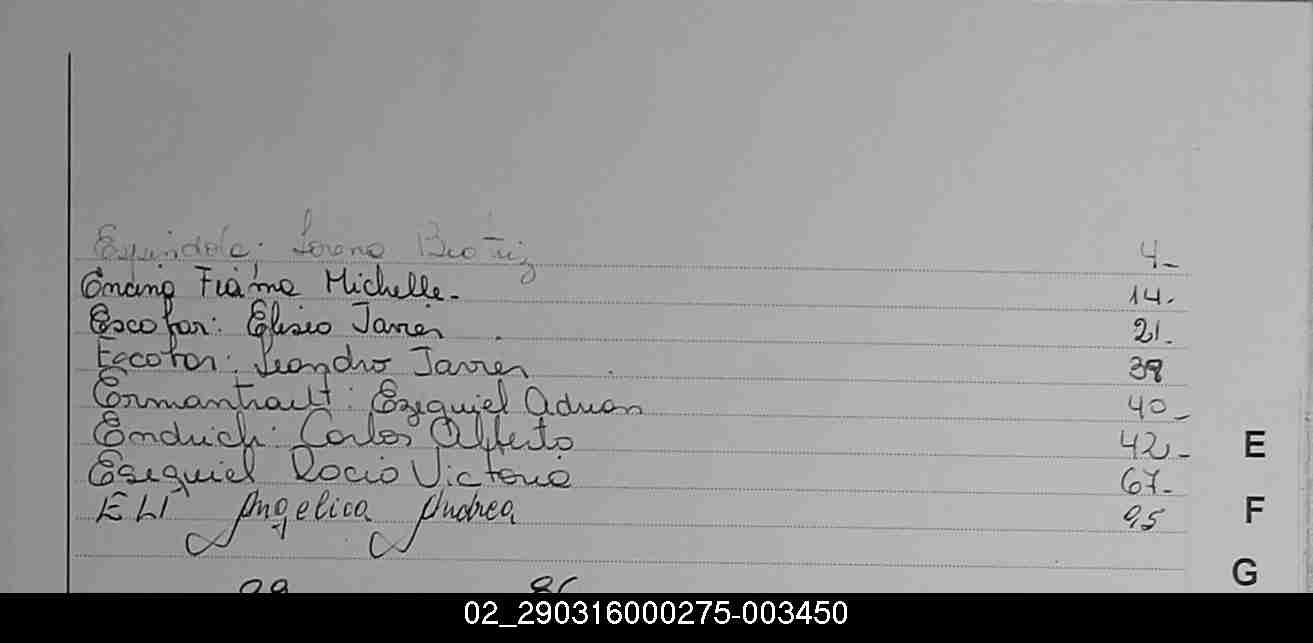 Espindola: Lorena Beatriz 4-
Encina Fiama Michelle- 14.
Escobar: Eliseo Javier 21.
Escobar: Leandro Javier 39
Ermantraut: Ezequiel Adrian 40-
Endrich: Carlos Alberto 42-
Esequiel Rocio Victoria 67-
ELI Angelica Andrea 95
E
F
G
02_290316000275-003450